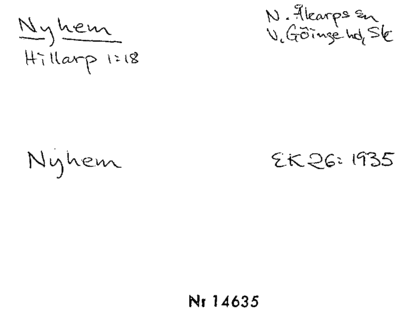 Nyhem
N. Åkarps sn
Hillarp 1:18
V. Göinge hd, Sk
Nyhem
EK 26: 1935
Nr 14635